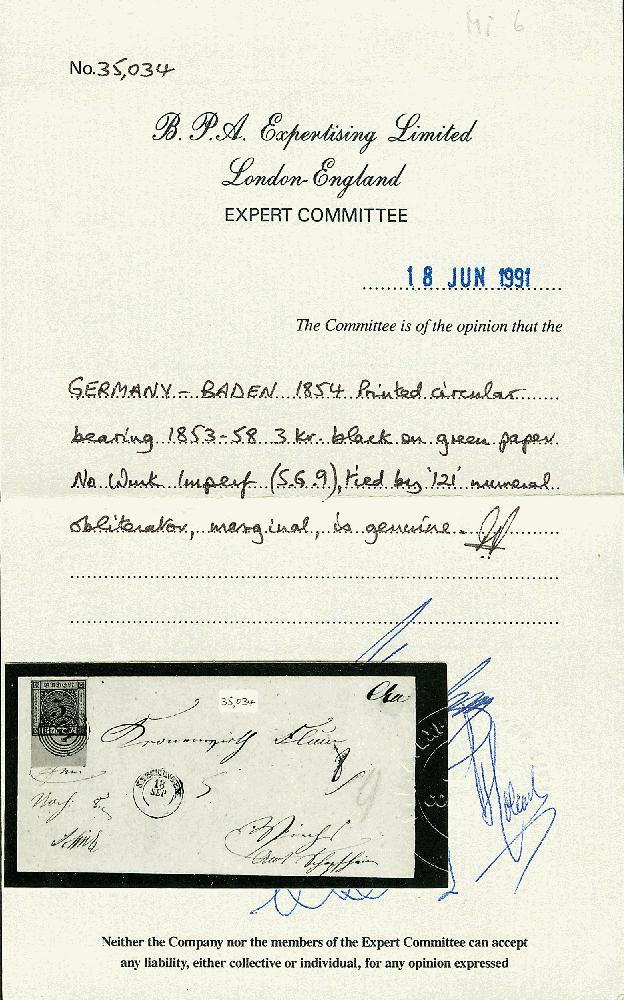 Mi 6
No. 35,034
B. P. A. Expertising Limited
London-England
EXPERT COMMITTEE
18 JUN 1991
The Committee is of the opinion that the
GERMANY - BADEN 1854 Printed circular
bearing 1853-58 3 kr. black on green paper
No Wmk Imperf (S.G.9), tied by '121' numeral
obliterator, marginal, is genuine.
35,034
18
SEP
Neither the Company nor the members of the Expert Committee can accept
any liability, either collective or individual, for any opinion expressed